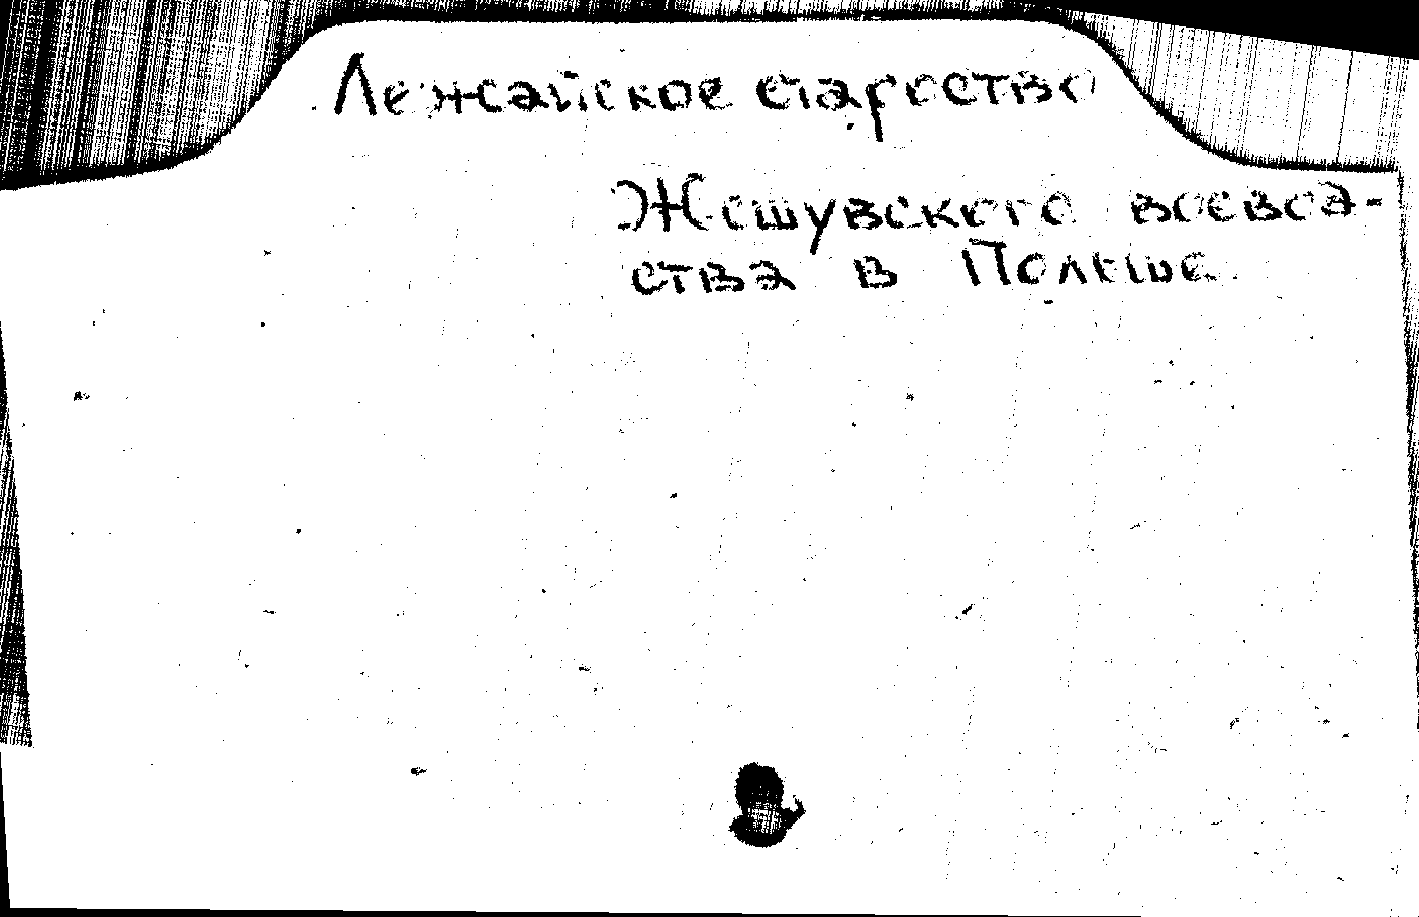 Лежайское староство
Жешувского воевод-
ства в Польше.